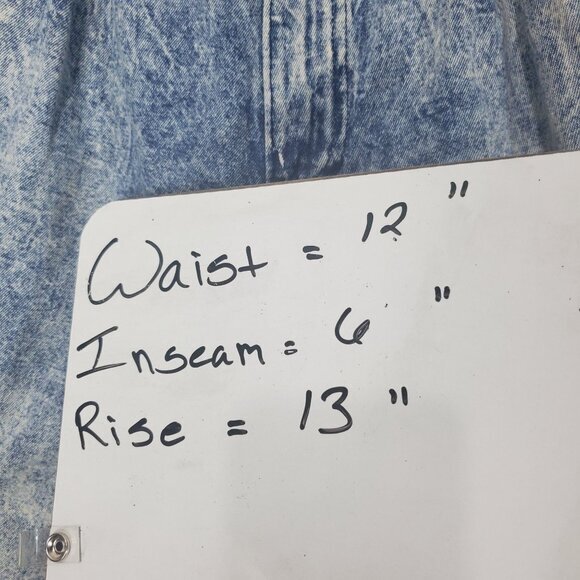 Waist = 12 "
Inseam = 6 "
Rise = 13 "